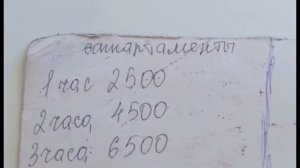 апартаменты
1 час 2500
2 часа, 4500
3 часа. 6500